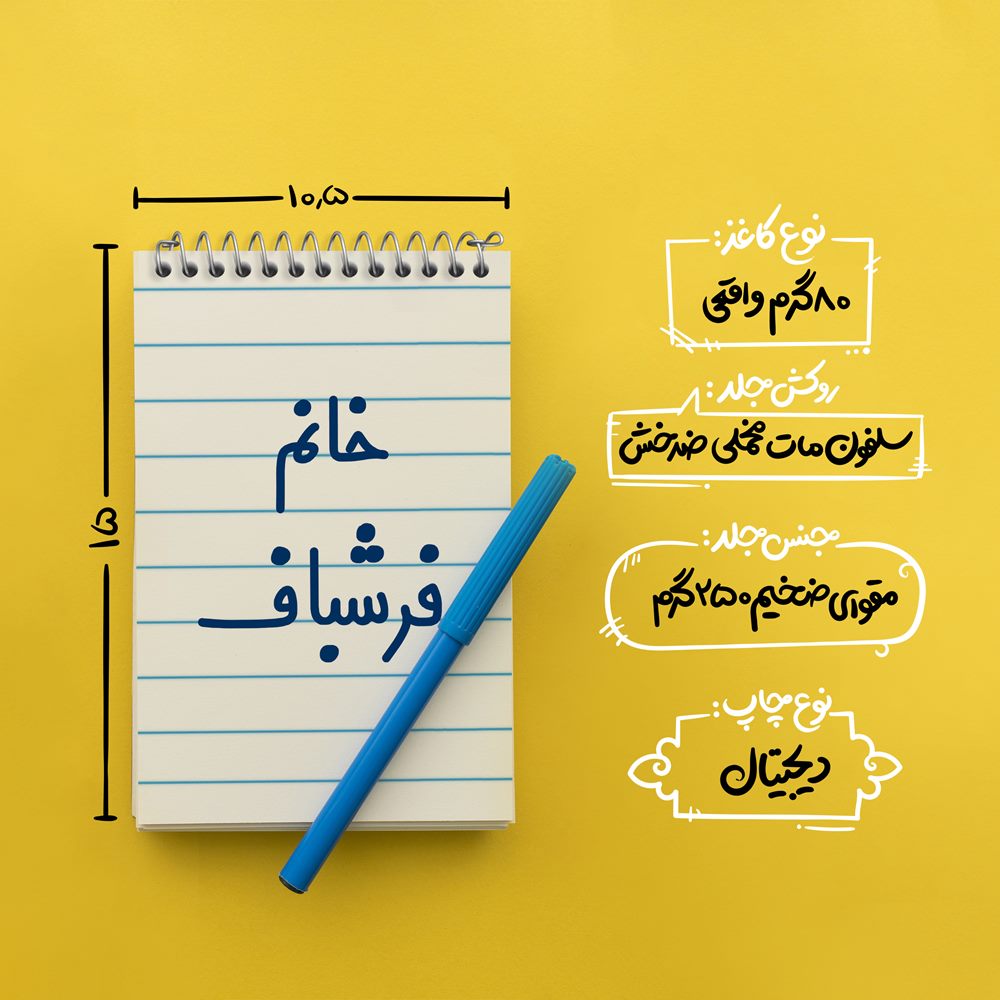 ۱۰٫۵
۱۵
خانم
فرشباف
نوع کاغذ:
۸۰گرم واقعی
روکش جلد:
سلفون مات مخملی ضدخش
جنس جلد:
مقوای ضخیم ۲۵۰گرم
نوع چاپ:
دیجیتال